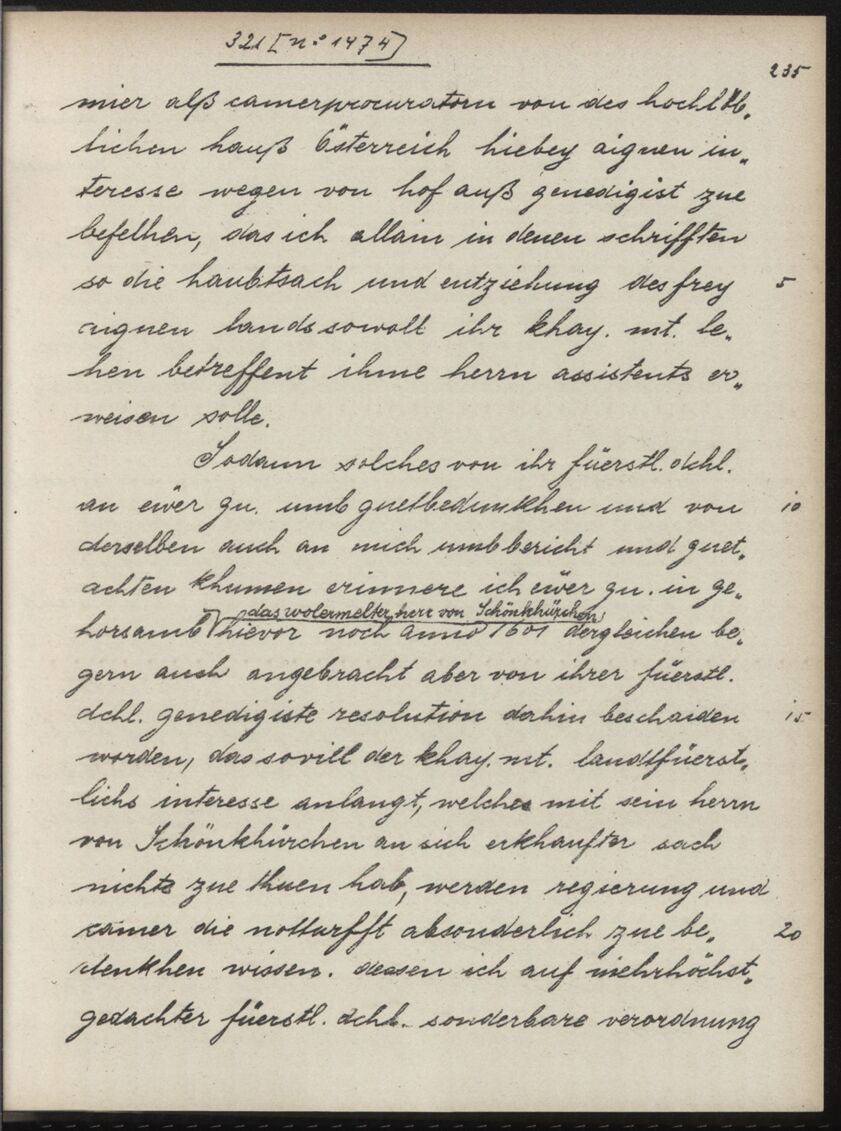 321 [n:o 1474]
235
mier alß camerprocuratorn von des hochlöb„
lichen hauß Österreich hiebey aignen in„
teresse wegen von hof auß genedigist zue
befelhen, das ich allain in denen schrifften
so die haubtsach und entziehung des frey 5
aignen lands sowoll ihr khay. mt. le„
hen betreffent ihme herrn assistents er„
weisen solle.
Sodann solches von ihr füerstl. dchl.
an ewer gn. umb guetbedunkhen und von 10
derselben auch an mich umb bericht und guet„
achten khumen erinnere ich ewer gn. in ge„
das wolermelter herr von Schönkhürchen
horsamb hievor noch anno 1601 dergleichen be„
gern auch angebracht aber von ihrer füerstl.
dchl. genedigiste resolution dahin beschaiden 15
worden, das sovill der khay. mt. landtfüerst„
lichs interesse anlangt, welches mit sein herrn
von Schönkhürchen an sich erkhaufter sach
nichts zue thuen hab, werden regierung und
camer die notturfft absonderlich zue be„ 20
denkhen wissen. dessen ich auf mehrhöchst„
gedachter füerstl. dchl. sonderbare verordnung